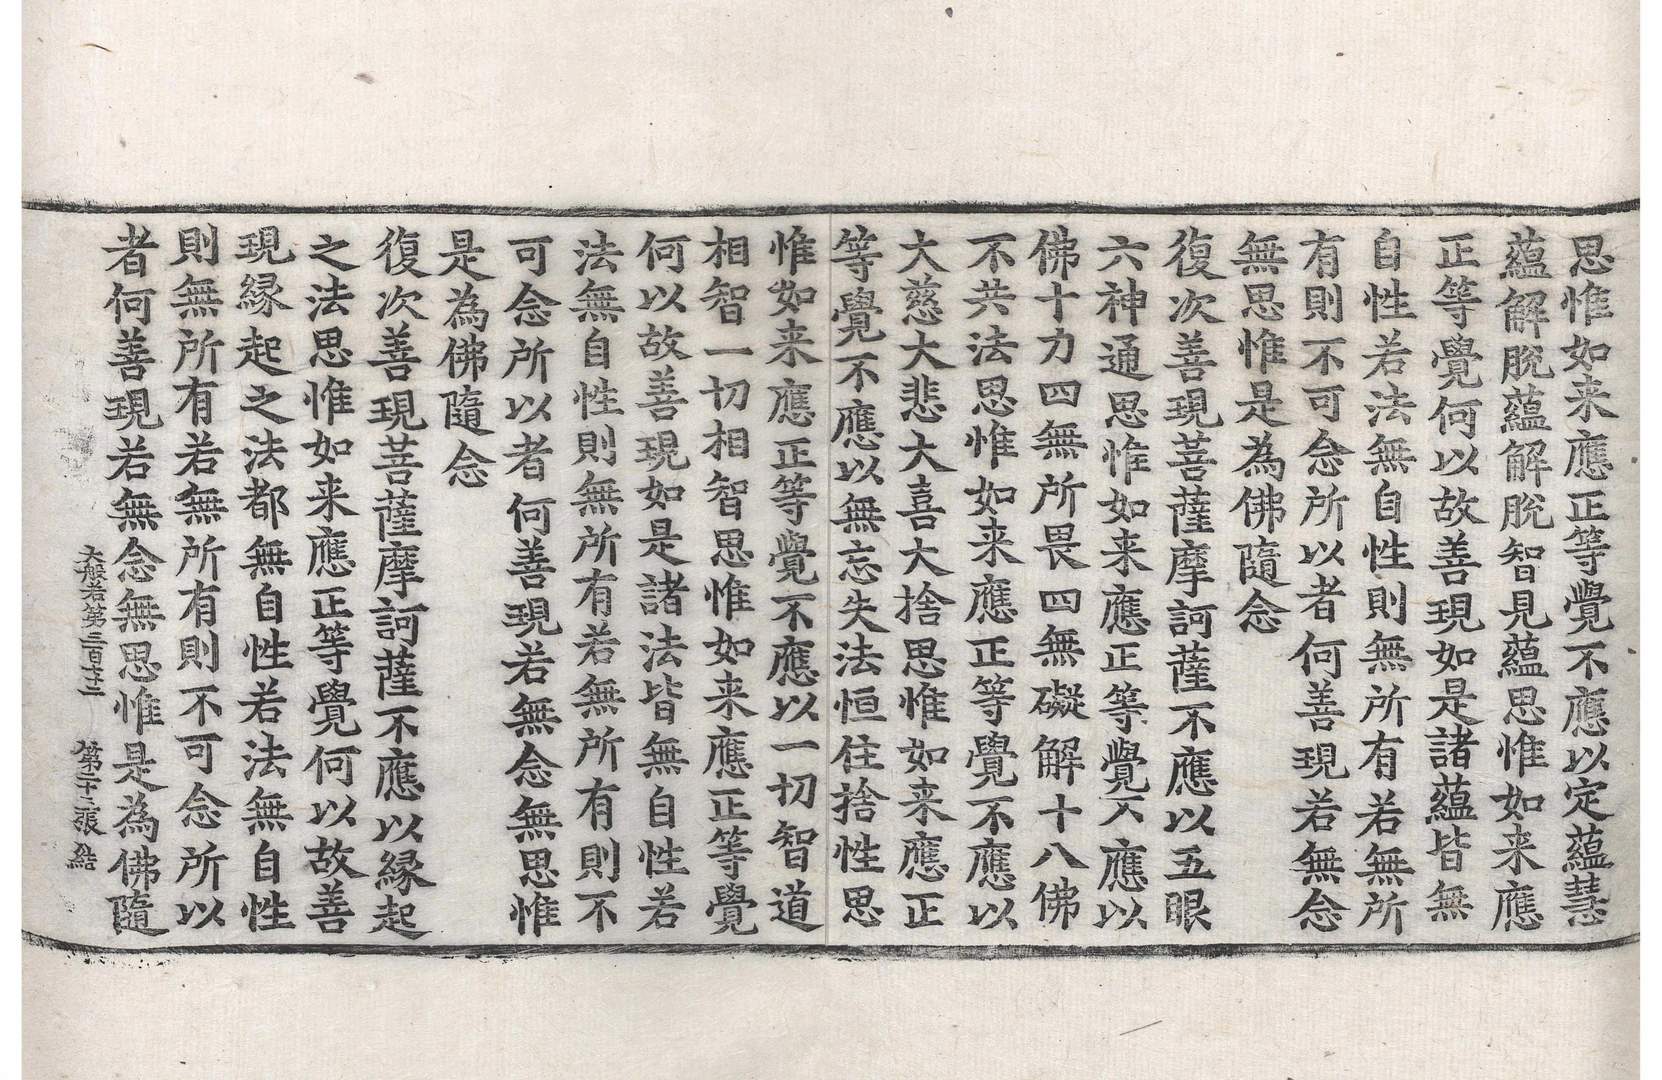 思惟如来應正等覺不應以定蘊慧
蘊解脫蘊解脫智見蘊思惟如来應
正等覺何以故善現如是諸蘊皆無
自性若法無自性則無所有若無所
有則不可念所以者何善現若無念
無思惟是為佛隨念
復次善現菩薩摩訶薩不應以五眼
六神通思惟如来應正等覺不應以
佛十力四無所畏四無礙解十八佛
不共法思惟如来應正等覺不應以
大慈大悲大喜大捨思惟如来應正
等覺不應以無忘失法恒住捨性思
惟如来應正等覺不應以一切智道
相智一切相智思惟如来應正等覺
何以故善現如是諸法皆無自性若
法無自性則無所有若無所有則不
可念所以者何善現若無念無思惟
是為佛隨念
復次善現菩薩摩訶薩不應以緣起
之法思惟如来應正等覺何以故善
現緣起之法都無自性若法無自性
則無所有若無所有則不可念所以
者何善現若無念無思惟是為佛隨
大般若第三百七十二 第二十三張 結